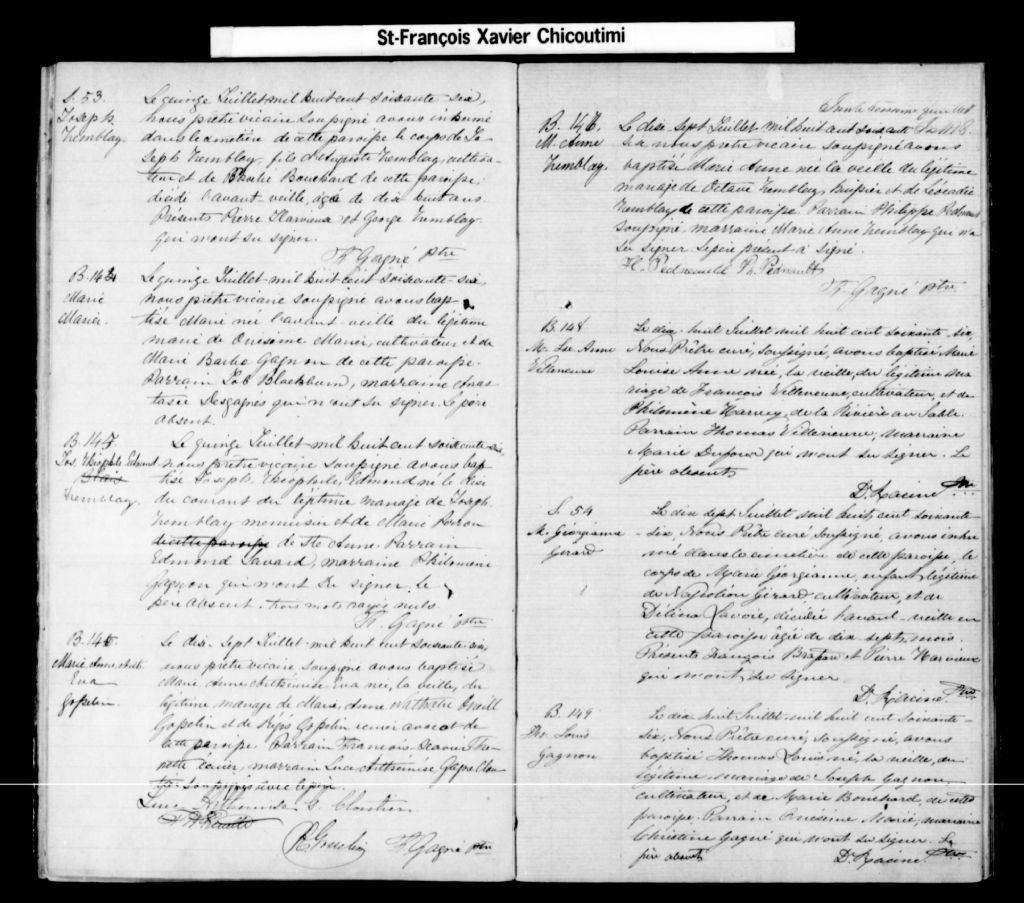 St-François Xavier Chicoutimi
S. 53.
Joseph
Tremblay.
Le quinze Juillet mil huit cent soixante-six,
nous prêtre vicaire soussigné avons inhumé
dans le cimetière de cette paroisse le corps de Jo
seph Tremblay, fils d'Auguste Tremblay, cultiva-
teur et de Bouchard de cette paroisse,
décédé l'avant veille, âgé de dix huit ans.
Présents Pierre Harvieux et George Tremblay
qui n'ont su signer.
F. Gagné ptre
B. 144
Marie
Marier.
Le quinze Juillet mil huit cent soixante-six,
nous prêtre vicaire soussigné avons bap-
tisé Marie née l'avant-veille du légitime
marié de Onésime Marier, cultivateur et de
Marie Barbe Gagnon de cette paroisse.
Parrain Job Blackburn, marraine Anas-
tasie Desgagnés qui n'ont su signer. Le père
absent.
B. 145
Jos. Théophile Edmond
Tremblay.
Le quinze Juillet mil huit cent soixante-six,
nous prêtre vicaire soussigné avons bap-
tisé Joseph, Théophile, Edmond né le
du courant du légitime mariage de Joseph
Tremblay menuisier et de Marie Perron
de cette paroisse de Ste Anne. Parrain
Edmond Savard, marraine Philomène
Gagnon qui n'ont su signer. le
père absent. trois mots rayés nuls
F. Gagné ptre
B. 146
Marie Anne Arth.
Eva
Gosselin.
Le dix-sept Juillet mil huit cent soixante-six,
nous prêtre vicaire soussigné avons baptisé
Marie Anne Arthémise Eva née, la veille, du
légitime mariage de Marie Anne Nathalie
Gosselin et de Régis Gosselin écuier avocat de
cette paroisse. Parrain François Xavier
écuier, marraine Luce Arthémise Gagné Clou-
tier soussignés avec le père.
Luce Arthémise G. Cloutier
R. Gosselin F. Gagné ptre
B. 147.
M. Anne
Tremblay.
Le dix-sept Juillet mil huit cent soixante
six nous prêtre vicaire soussigné avons
baptisé Marie Anne née la veille du légitime
mariage de Octave Tremblay, huissier et de Léocadie
Tremblay de cette paroisse. Parrain Philippe Pednault
soussigné, marraine Marie Anne Tremblay qui n'a
su signer. Le père présent a signé.
H. Pednault Ph. Pednault
F. Gagné ptre
B. 148
M. Ls. Anne
Villeneuve
Le dix-huit Juillet mil huit cent soixante-six,
Nous Prêtre curé, soussigné, avons baptisé Marie
Louise Anne née, la veille, du légitime ma
riage de François Villeneuve, cultivateur, et de
Philomène Harvey, de la Rivière au Sable.
Parrain Thomas Villeneuve, marraine
Marie Dufour qui n'ont su signer. Le
père absent
D. Racine Ptre
S. 54
M. Géorgianne
Girard
Le dix sept Juillet mil huit cent soixante-
-six, Nous Prêtre curé, soussigné, avons inhu
mé dans le cimetière de cette paroisse, le
corps de Marie Géorgianne, enfant légitime
de Napoléon Girard cultivateur, et de
Délina Lavoie, décédée l'avant-veille en
cette paroisse âgée de dix sept mois.
Présents François Brassard et Pierre Harvieux
qui n'ont su signer.
D. Racine Ptre
B. 149
Ths. Louis
Gagnon
Le dix huit Juillet mil huit cent soixante-
six, Nous Prêtre curé, soussigné, avons
baptisé Thomas Louis né, la veille, du
légitime mariage de Joseph Gagnon
cultivateur, et de Marie Bouchard, de cette
paroisse. Parrain Onésime Marié, marraine
Christine Gagné qui n'ont su signer. Le
père absent
D. Racine Ptre